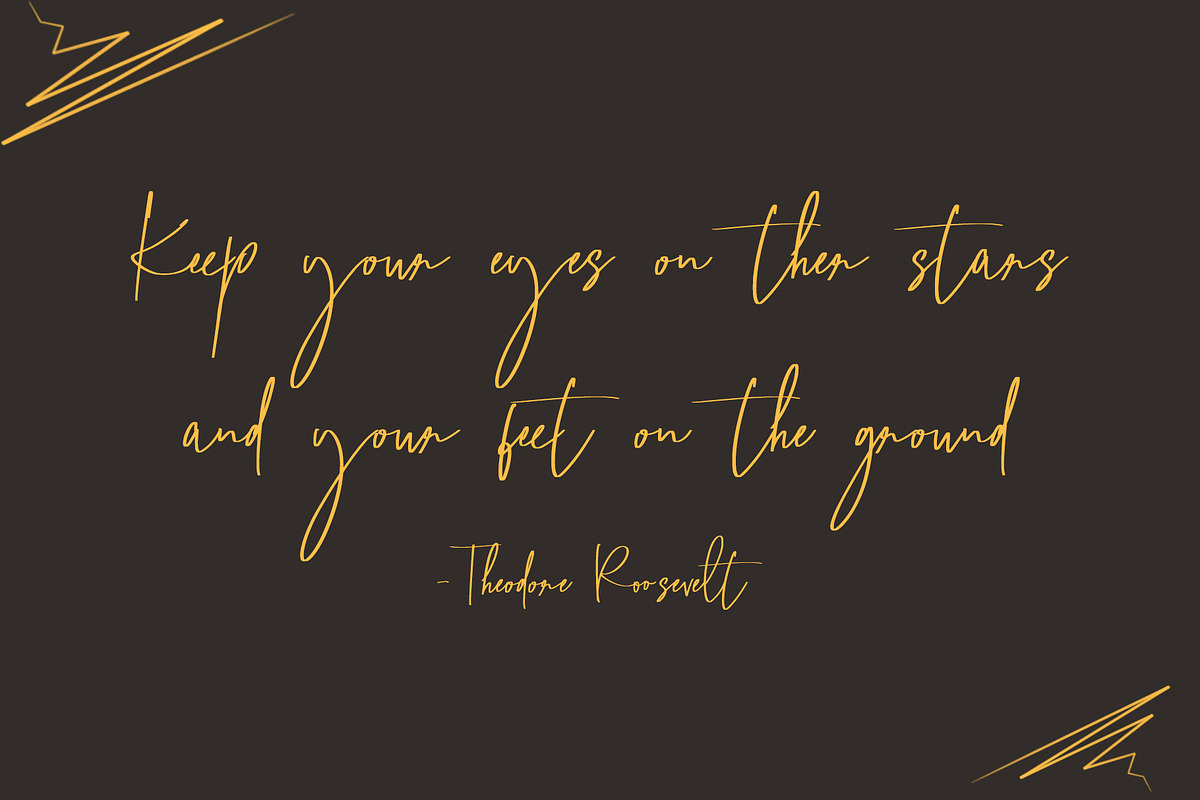 Keep your eyes on ther stars
and your feet on the ground
-Theodore Roosevelt